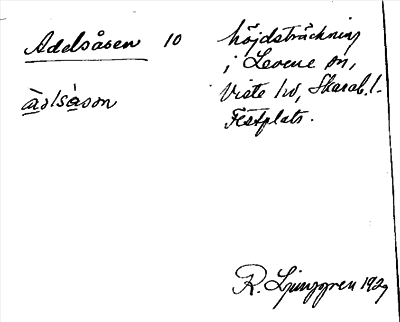 Adelsåsen 10
höjdsträckning
i Levene sn,
Viste hd, Skarab. l.
Festplats.
àdlsàson
R. Ljunggren 1927